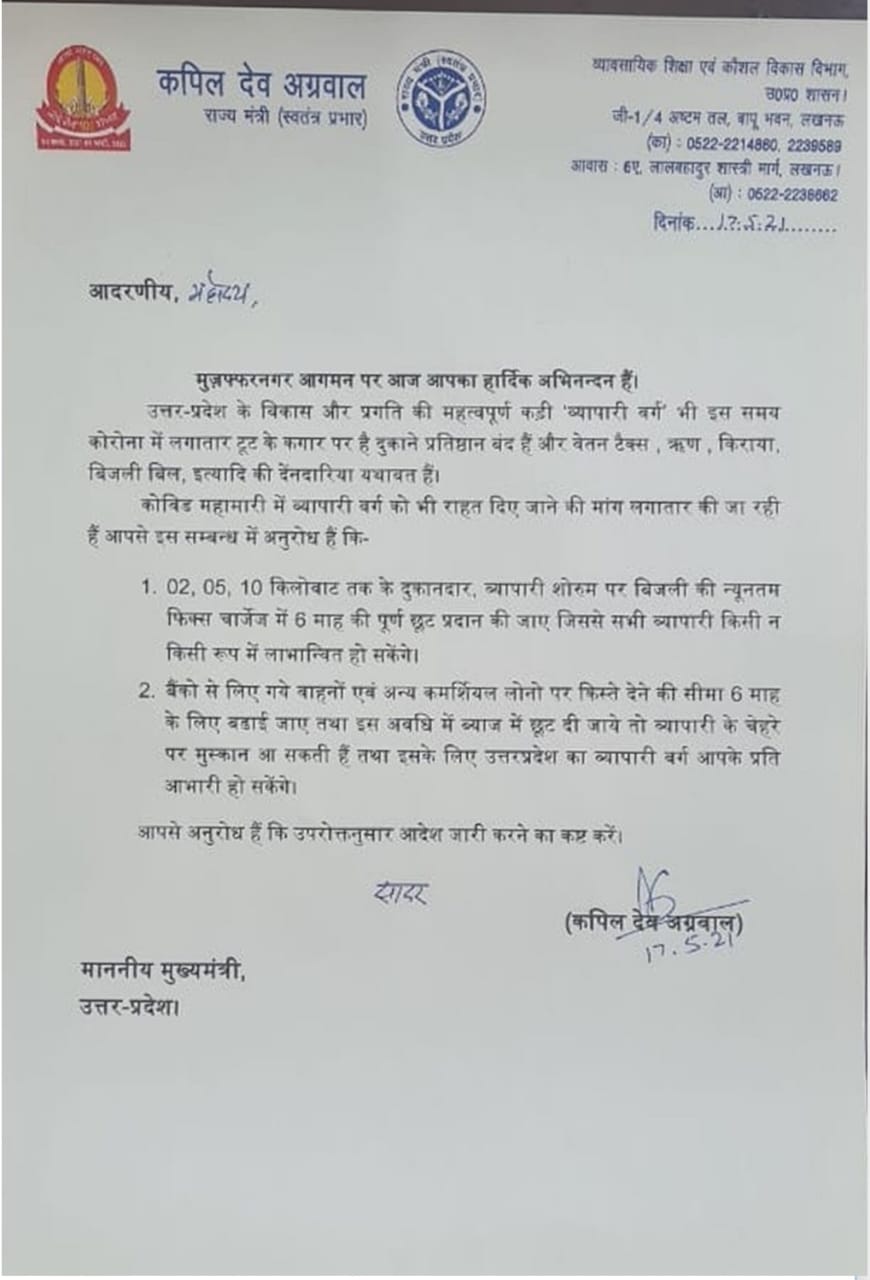 कपिल देव अग्रवाल
राज्य मंत्री (स्वतंत्र प्रभार)
राज्य मंत्री (स्वतंत्र प्रभार)
उत्तर प्रदेश
व्यावसायिक शिक्षा एवं कौशल विकास विभाग,
उ0प्र0 शासन।
जी-1/4 अष्टम तल, बापू भवन, लखनऊ
(का) : 0522-2214860, 2239589
आवास : 6ए, लालबहादुर शास्त्री मार्ग, लखनऊ।
(आ) : 0522-2236662
दिनांक...17.5.21........
आदरणीय, महोदय,
मुज़फ्फरनगर आगमन पर आज आपका हार्दिक अभिनन्दन हैं।
उत्तर-प्रदेश के विकास और प्रगति की महत्वपूर्ण कड़ी 'व्यापारी वर्ग' भी इस समय
कोरोना में लगातार टूट के कगार पर है दुकाने प्रतिष्ठान बंद हैं और वेतन टैक्स , ऋण , किराया,
बिजली बिल, इत्यादि की देंनदारिया यथावत हैं।
कोविड महामारी में व्यापारी वर्ग को भी राहत दिए जाने की मांग लगातार की जा रही
हैं आपसे इस सम्बन्ध में अनुरोध हैं कि-
1. 02, 05, 10 किलोवाट तक के दुकानदार, व्यापारी शोरुम पर बिजली की न्यूनतम
फिक्स चार्जेज में 6 माह की पूर्ण छूट प्रदान की जाए जिससे सभी व्यापारी किसी न
किसी रूप में लाभान्वित हो सकेंगे।
2. बैंको से लिए गये वाहनों एवं अन्य कमर्शियल लोनो पर किस्ते देने की सीमा 6 माह
के लिए बढाई जाए तथा इस अवधि में ब्याज में छूट दी जाये तो व्यापारी के चेहरे
पर मुस्कान आ सकती हैं तथा इसके लिए उत्तरप्रदेश का व्यापारी वर्ग आपके प्रति
आभारी हो सकेंगे।
आपसे अनुरोध हैं कि उपरोक्तनुसार आदेश जारी करने का कष्ट करें।
सादर
(कपिल देव अग्रवाल)
17.5.21
माननीय मुख्यमंत्री,
उत्तर-प्रदेश।